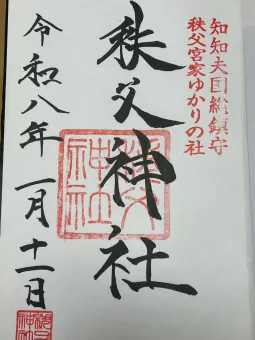 知知夫国総鎮守
秩父宮家ゆかりの社
秩父神社
秩父神社
令和八年一月十一日